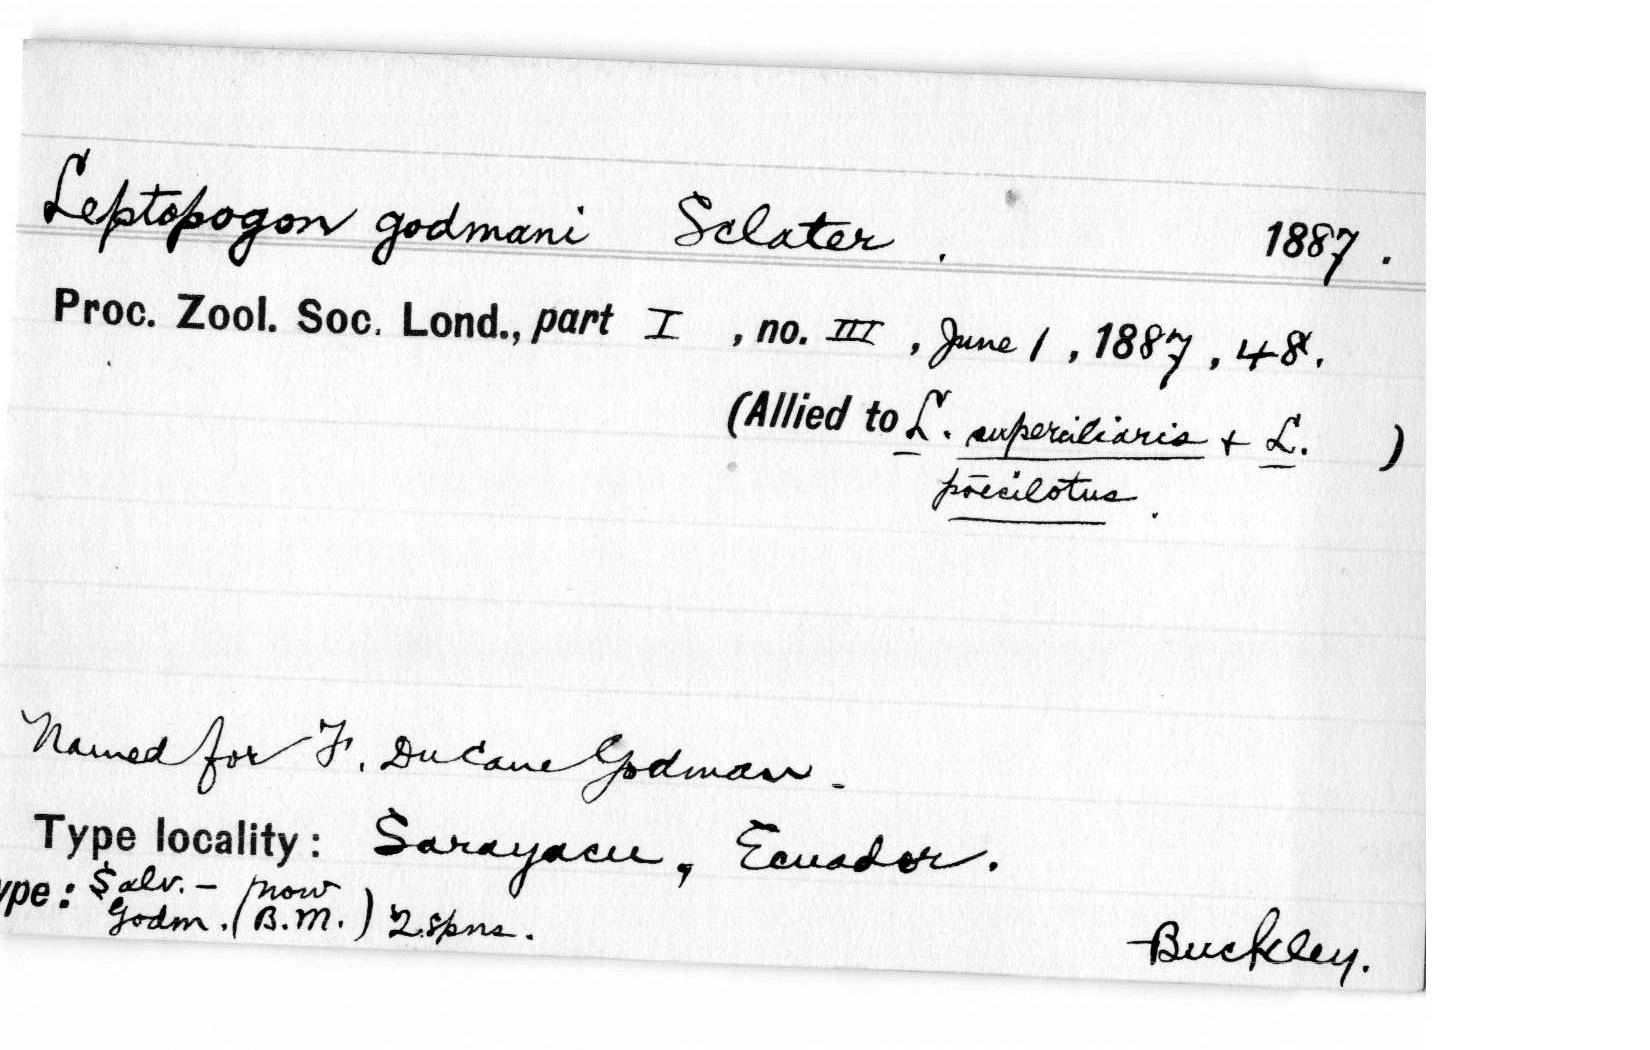 Leptopogon godmani Sclater . 1887 .
Proc. Zool. Soc. Lond., part I , no. III , June 1 , 1887 , 48 .
(Allied to L. superciliaris + L. )
pœcilotus .
Named for F. DuCane Godman .
Type locality : Sarayacu , Ecuador .
ype : Salv. - (now
Godm. (B.M.) 2 spns .
Buckley.